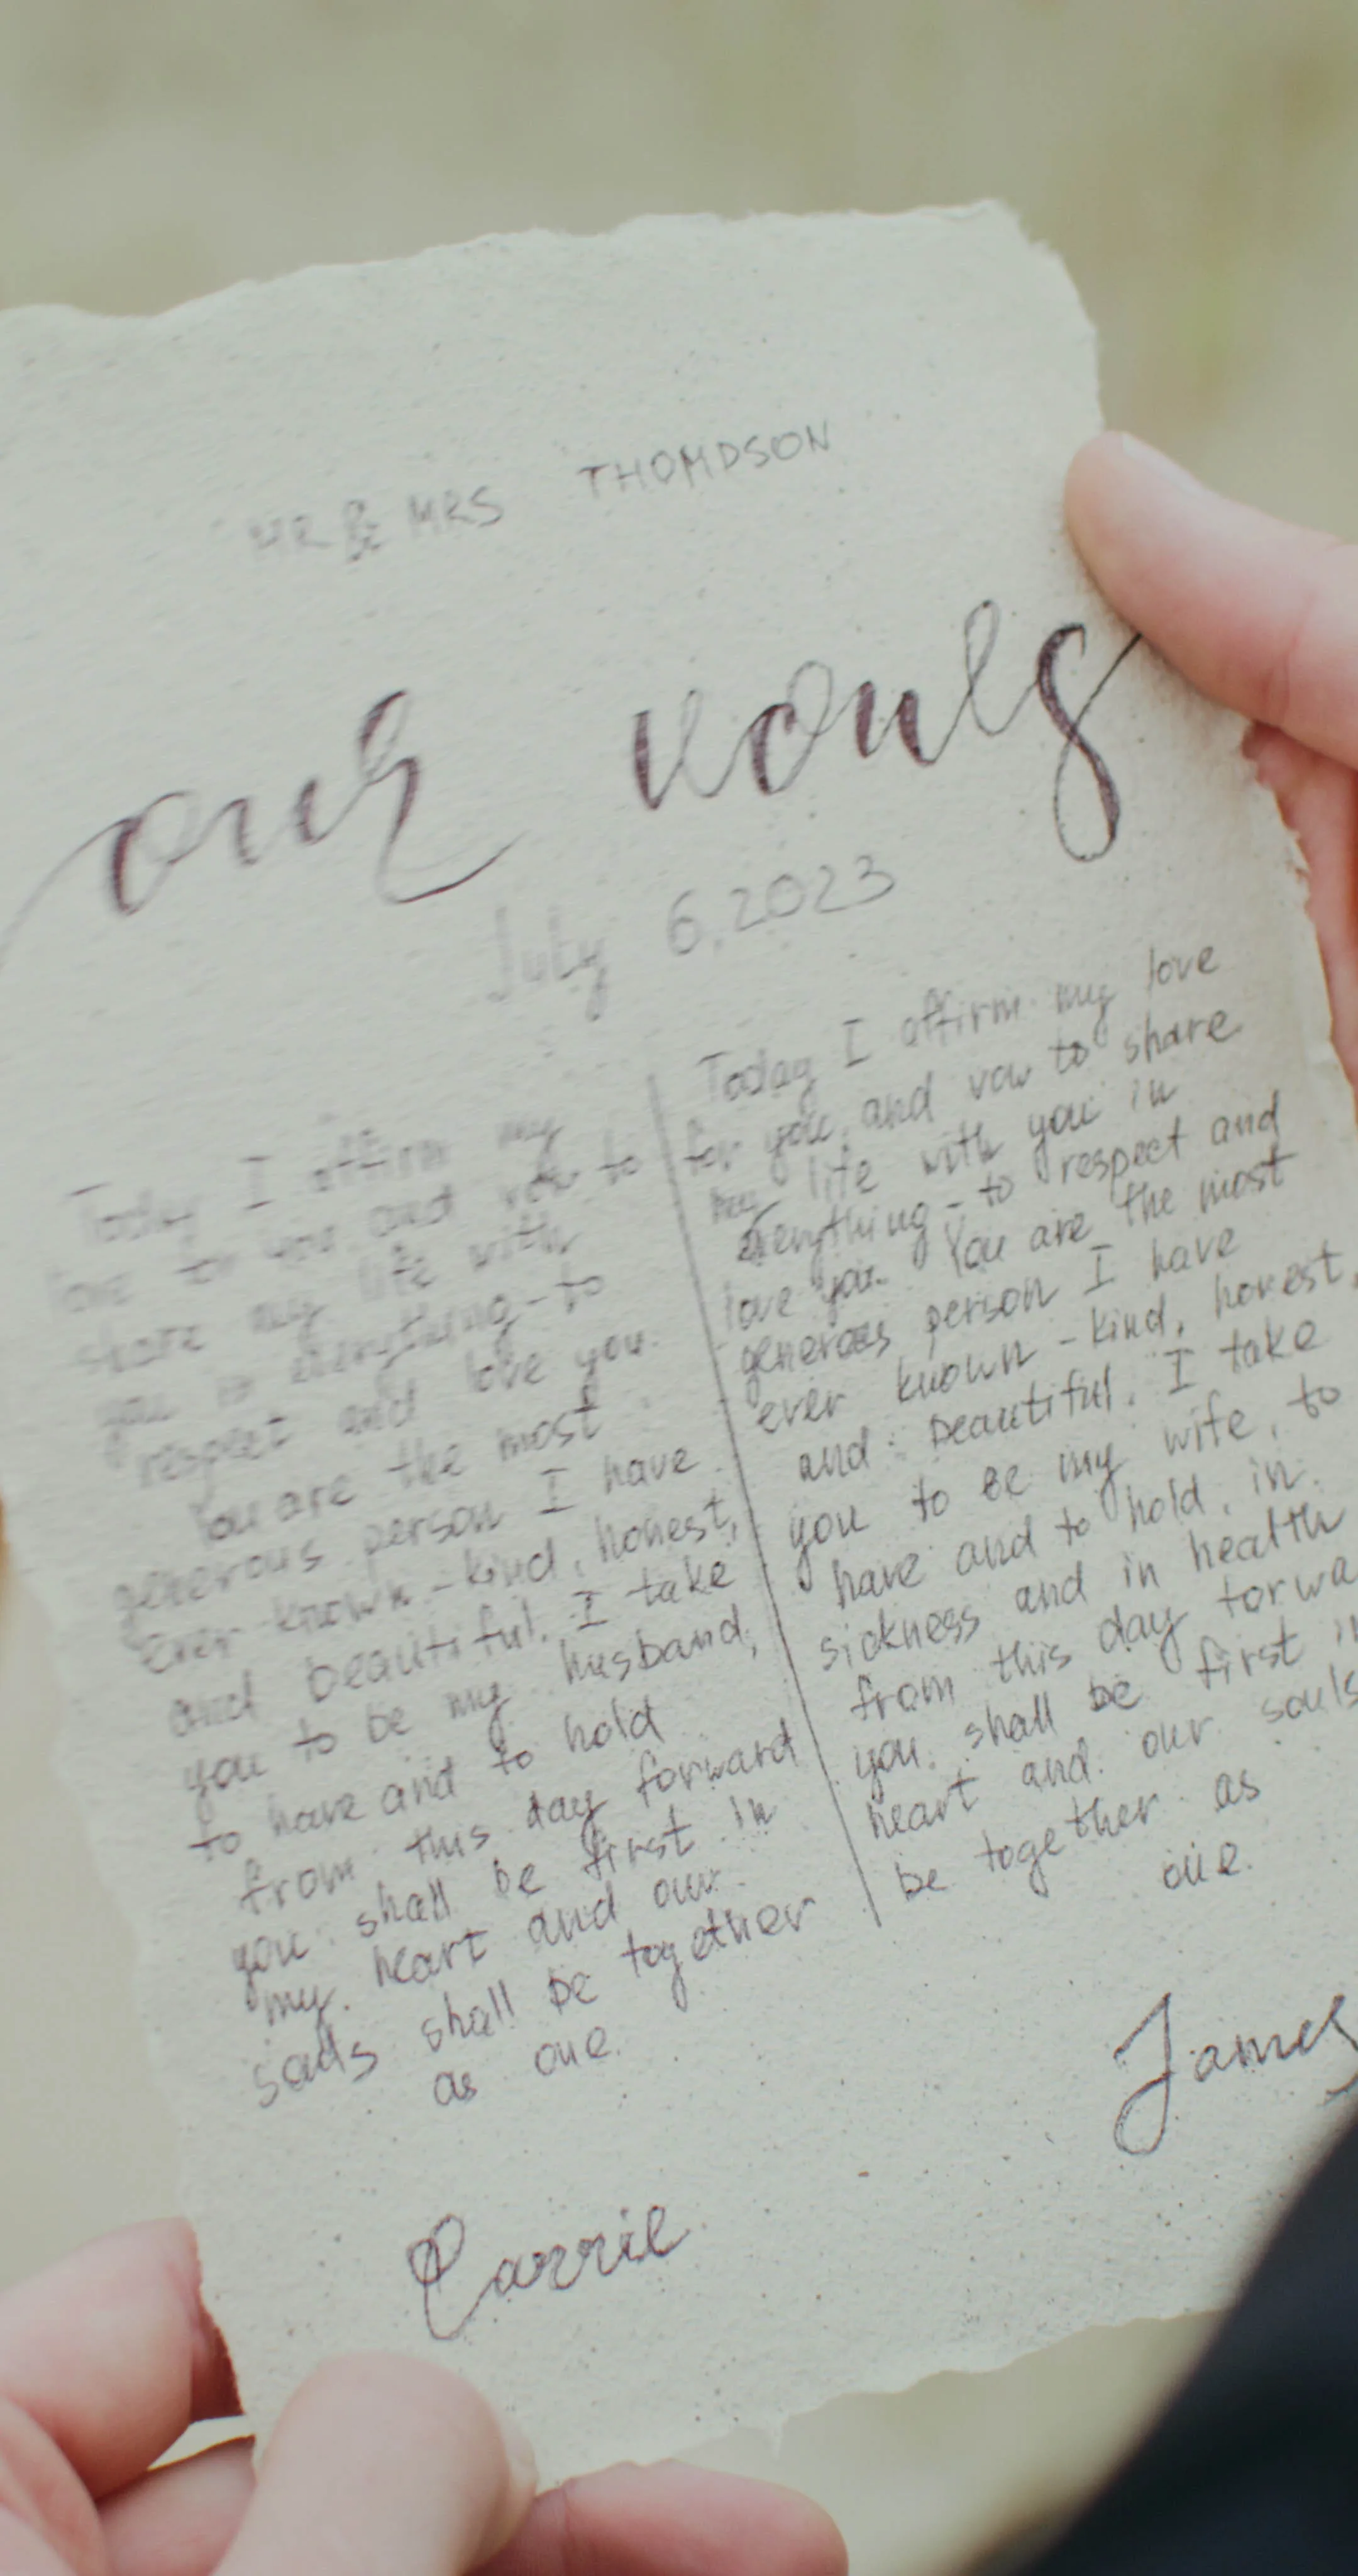 MR & MRS THOMDSON
our vouls
July 6, 2023
Today I affirm my
love to you and vow to
share my life with
you in everything - to
respect and love you.
You are the most
generous person I have
ever known - kind, honest,
and beautiful. I take
you to be my husband,
to have and to hold
from this day forward
you shall be first in
my heart and our
souls shall be together
as one.
Carrie
Today I affirm my love
for you, and vow to share
my life with you in
everything - to respect and
love you. You are the most
generous person I have
ever known - kind, honest,
and beautiful. I take
you to be my wife, to
have and to hold, in
sickness and in health
from this day forwa
you shall be first in
heart and our souls
be together as
one.
James